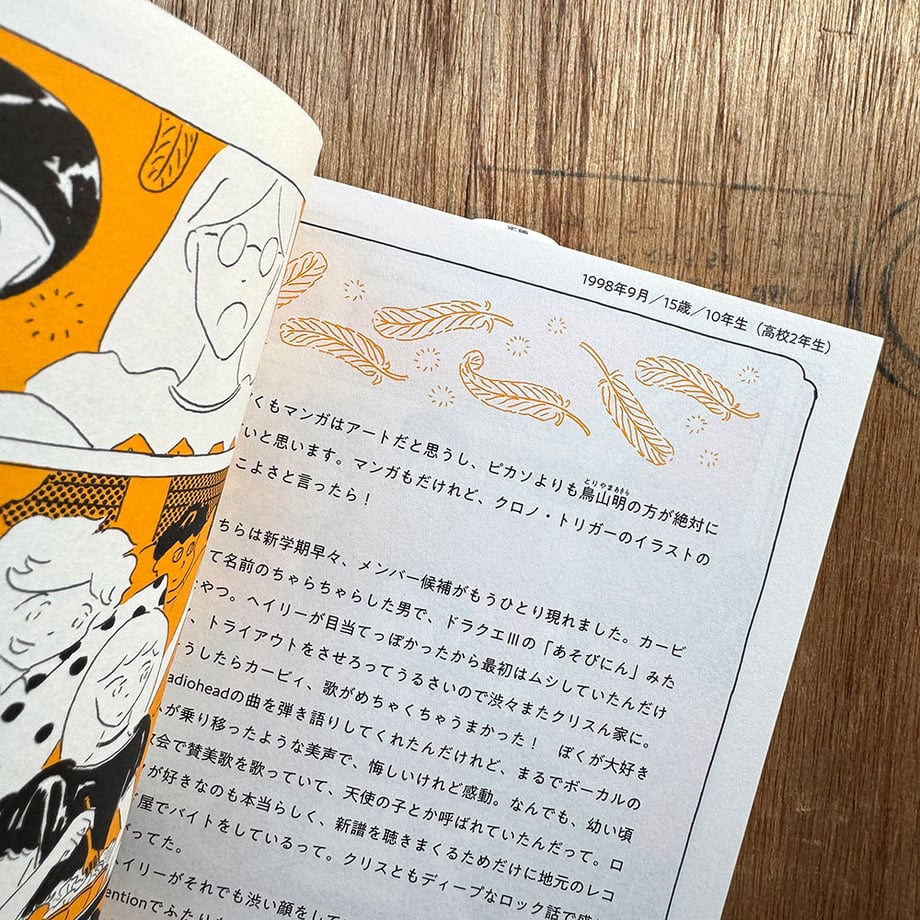 定価
1998年9月／15歳／10年生（高校2年生）
くもマンガはアートだと思うし、ピカソよりも鳥山明の方が絶対に
とりやまあきら
いと思います。マンガもだけれど、クロノ・トリガーのイラストの
こよさと言ったら！
ちらは新学期早々、メンバー候補がもうひとり現れました。カービ
て名前のちゃらちゃらした男で、ドラクエⅢの「あそびにん」みた
やつ。ヘイリーが目当てっぽかったから最初はムシしていたんだけ
、トライアウトをさせろってうるさいので渋々またクリスん家に。
うしたらカービィ、歌がめちゃくちゃうまかった！　ぼくが大好き
adioheadの曲を弾き語りしてくれたんだけれど、まるでボーカルの
が乗り移ったような美声で、悔しいけれど感動。なんでも、幼い頃
会で賛美歌を歌っていて、天使の子とか呼ばれていたんだって。ロ
が好きなのも本当らしく、新譜を聴きまくるためだけに地元のレコ
屋でバイトをしているって。クリスともディープなロック話で盛
ってた。
イリーがそれでも渋い顔をして
entionでふたり